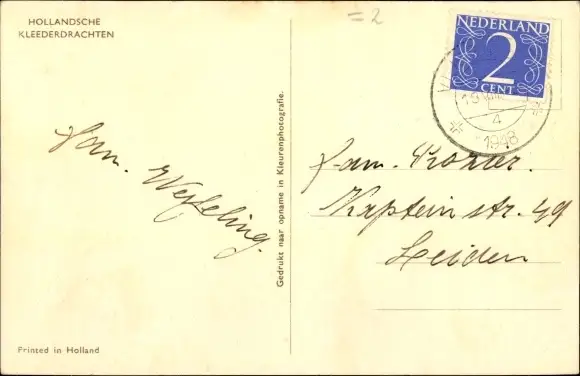 HOLLANDSCHE
KLEEDERDRACHTEN
= 2
NEDERLAND
2
CENT
4
1948
Fam. Wesseling.
Gedrukt naar opname in Kleurenphotografie.
Fam.
Kapteinstr. 49
Leiden
Printed in Holland